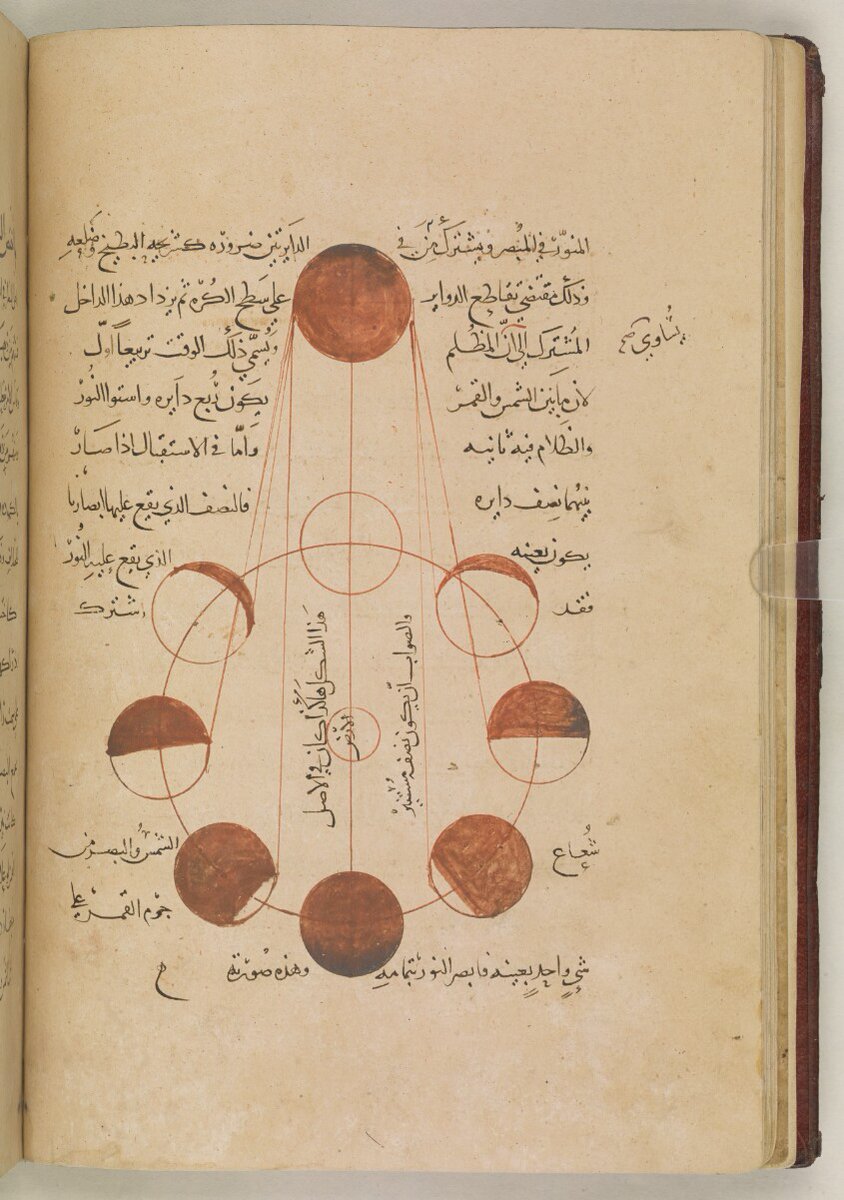 المنوّر في المبصر ويشترك في الدايرتين ضروره كشريحه البطيخ وضلعه
وذلك مقتضى تقاطع الدواير على سطح الكُره ثم يزداد هذا الداخل
المُشترك الى انّ المظلم ويُسمّى ذلك الوقت تربيعاً اوّل
يُساوي صح
لان ما بين الشمس والقمر يكون رُبع دايره واستوا النُور
والظلام فيه ثانيه وامّا في الاستقبال اذا صار
بينهما نصف دايره فالنصف الذي يقع عليها ابصارنا
يكون بعينه الذي يقع عليه النُور
فقد اشترك
هذا الشكل هكذا كان في الاصل
والصواب انّ يكون نصفه مستنير
الارض
شُعاع الشمس والبصر من
جرم القمر على
شي واحدٍ بعينه فابصر النور بتمامه وهذه صُورته